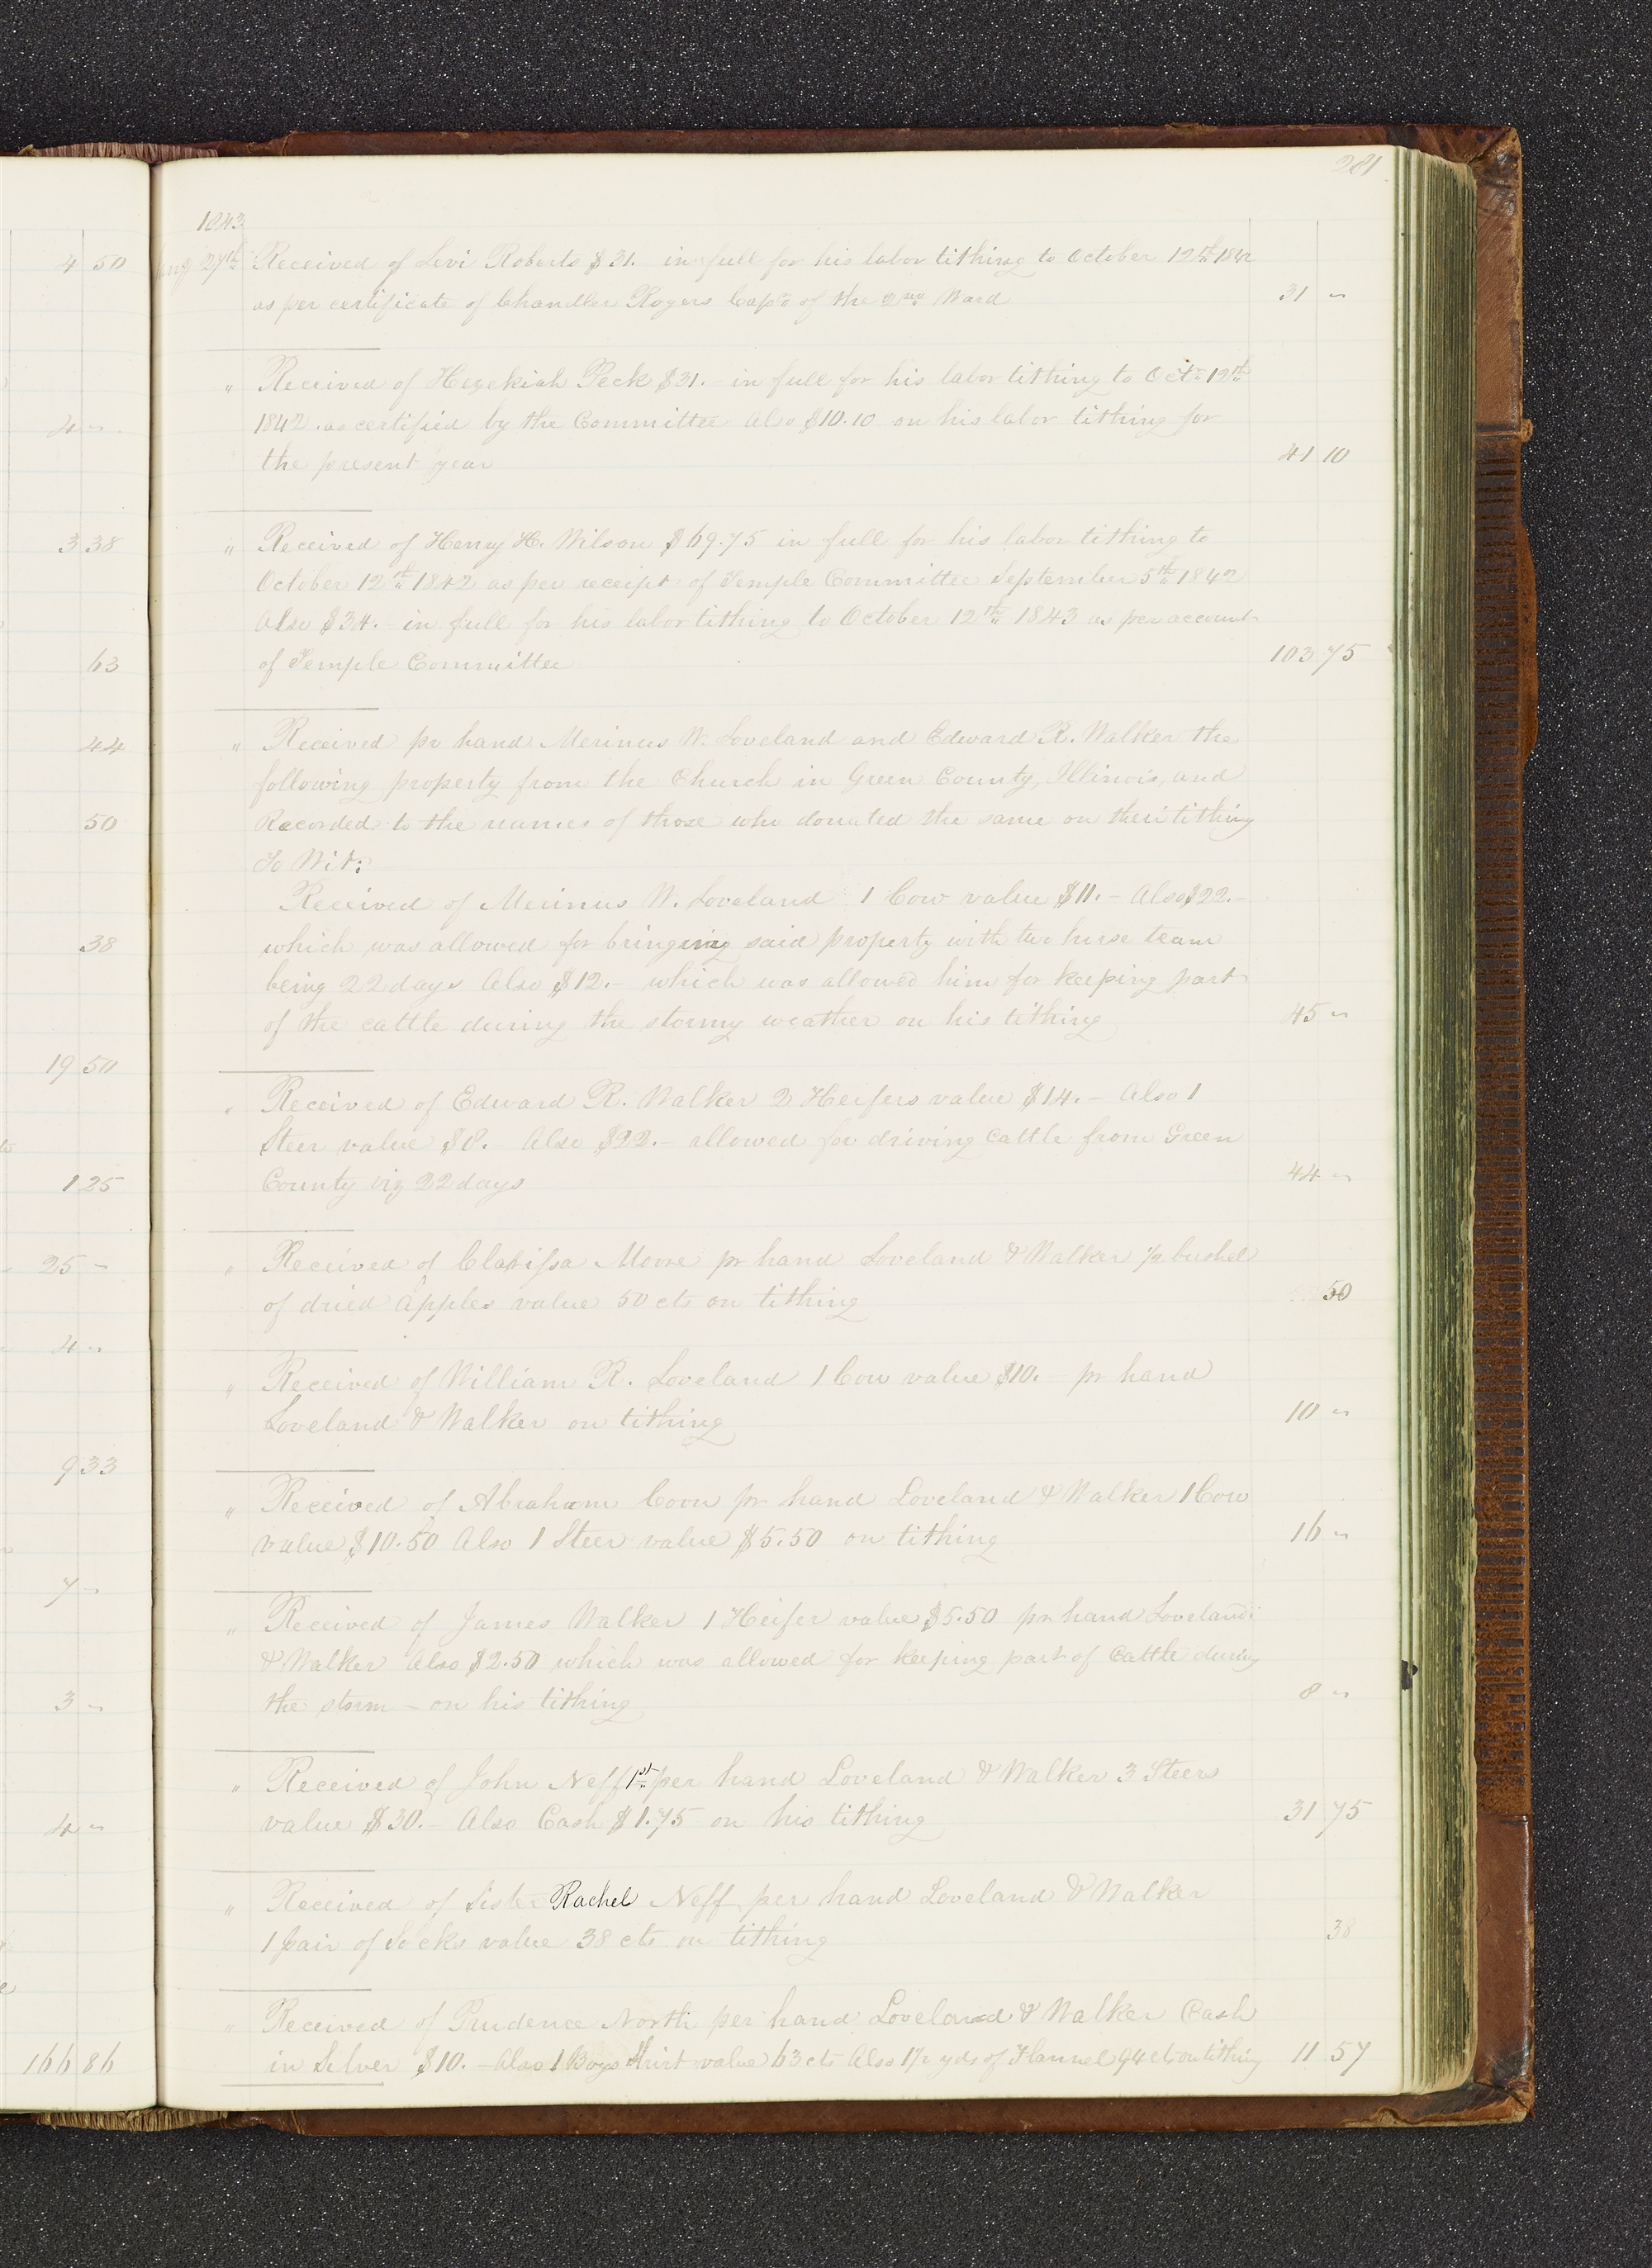 281
1843
Aug 27th Received of Levi Roberts $31. in full for his labor tithing to October 12th 1842
as per certificate of Chandler Rogers Capt. of the 2nd Ward 31 "
" Received of Hezekiah Peck $31. – in full for his labor tithing to Oct. 12th
1842. as certified by the Committee Also $10.10 on his labor tithing for
the present year 41 10
" Received of Henry H. Wilson $69.75 in full for his labor tithing to
October 12th 1842 as per receipt of Temple Committee September 5th 1842
Also $34. – in full for his labor tithing to October 12th 1843 as per account
of Temple Committee 103 75
" Received pr hand Merinus W. Loveland and Edward R. Walker the
following property from the Church in Green County, Illinois, and
Recorded to the names of those who donated the same on their tithing
To Wit:
Received of Merinus W. Loveland 1 Cow value $11. – Also $22. –
which was allowed for bringing said property with two horse team
being 22 days Also $12. – which was allowed him for keeping part
of the cattle during the stormy weather on his tithing 45 "
" Received of Edward R. Walker 2 Heifers value $14. – Also 1
Steer value $8. – Also $22. – allowed for driving Cattle from Green
County viz 22 days 44 "
" Received of Clarissa Moore pr hand Loveland & Walker 1/2 bushel
of dried Apples value 50 cts on tithing 50
" Received of William R. Loveland 1 Cow value $10. – pr hand
Loveland & Walker on tithing 10 "
" Received of Abraham Coon pr hand Loveland & Walker 1 Cow
value $10.50 Also 1 Steer value $5.50 on tithing 16 "
" Received of James Walker 1 Heifer value $5.50 pr hand Loveland
& Walker Also $2.50 which was allowed for keeping part of Cattle during
the storm – on his tithing 8 "
" Received of John Neff 1st per hand Loveland & Walker 3 Steers
value $30. – Also Cash $1.75 on his tithing 31 75
" Received of Sister Rachel Neff per hand Loveland & Walker
1 pair of Socks value 38 cts on tithing 38
" Received of Prudence North per hand Loveland & Walker Cash
in Silver $10. – Also 1 Boys Shirt value 63 cts Also 1 1/2 yds of Flannel 94 cts on tithing 11 57
4 50
4 "
3 38
63
44
50
38
19 50
1 25
25 –
4 "
9 33
7 "
3 "
4 "
166 86